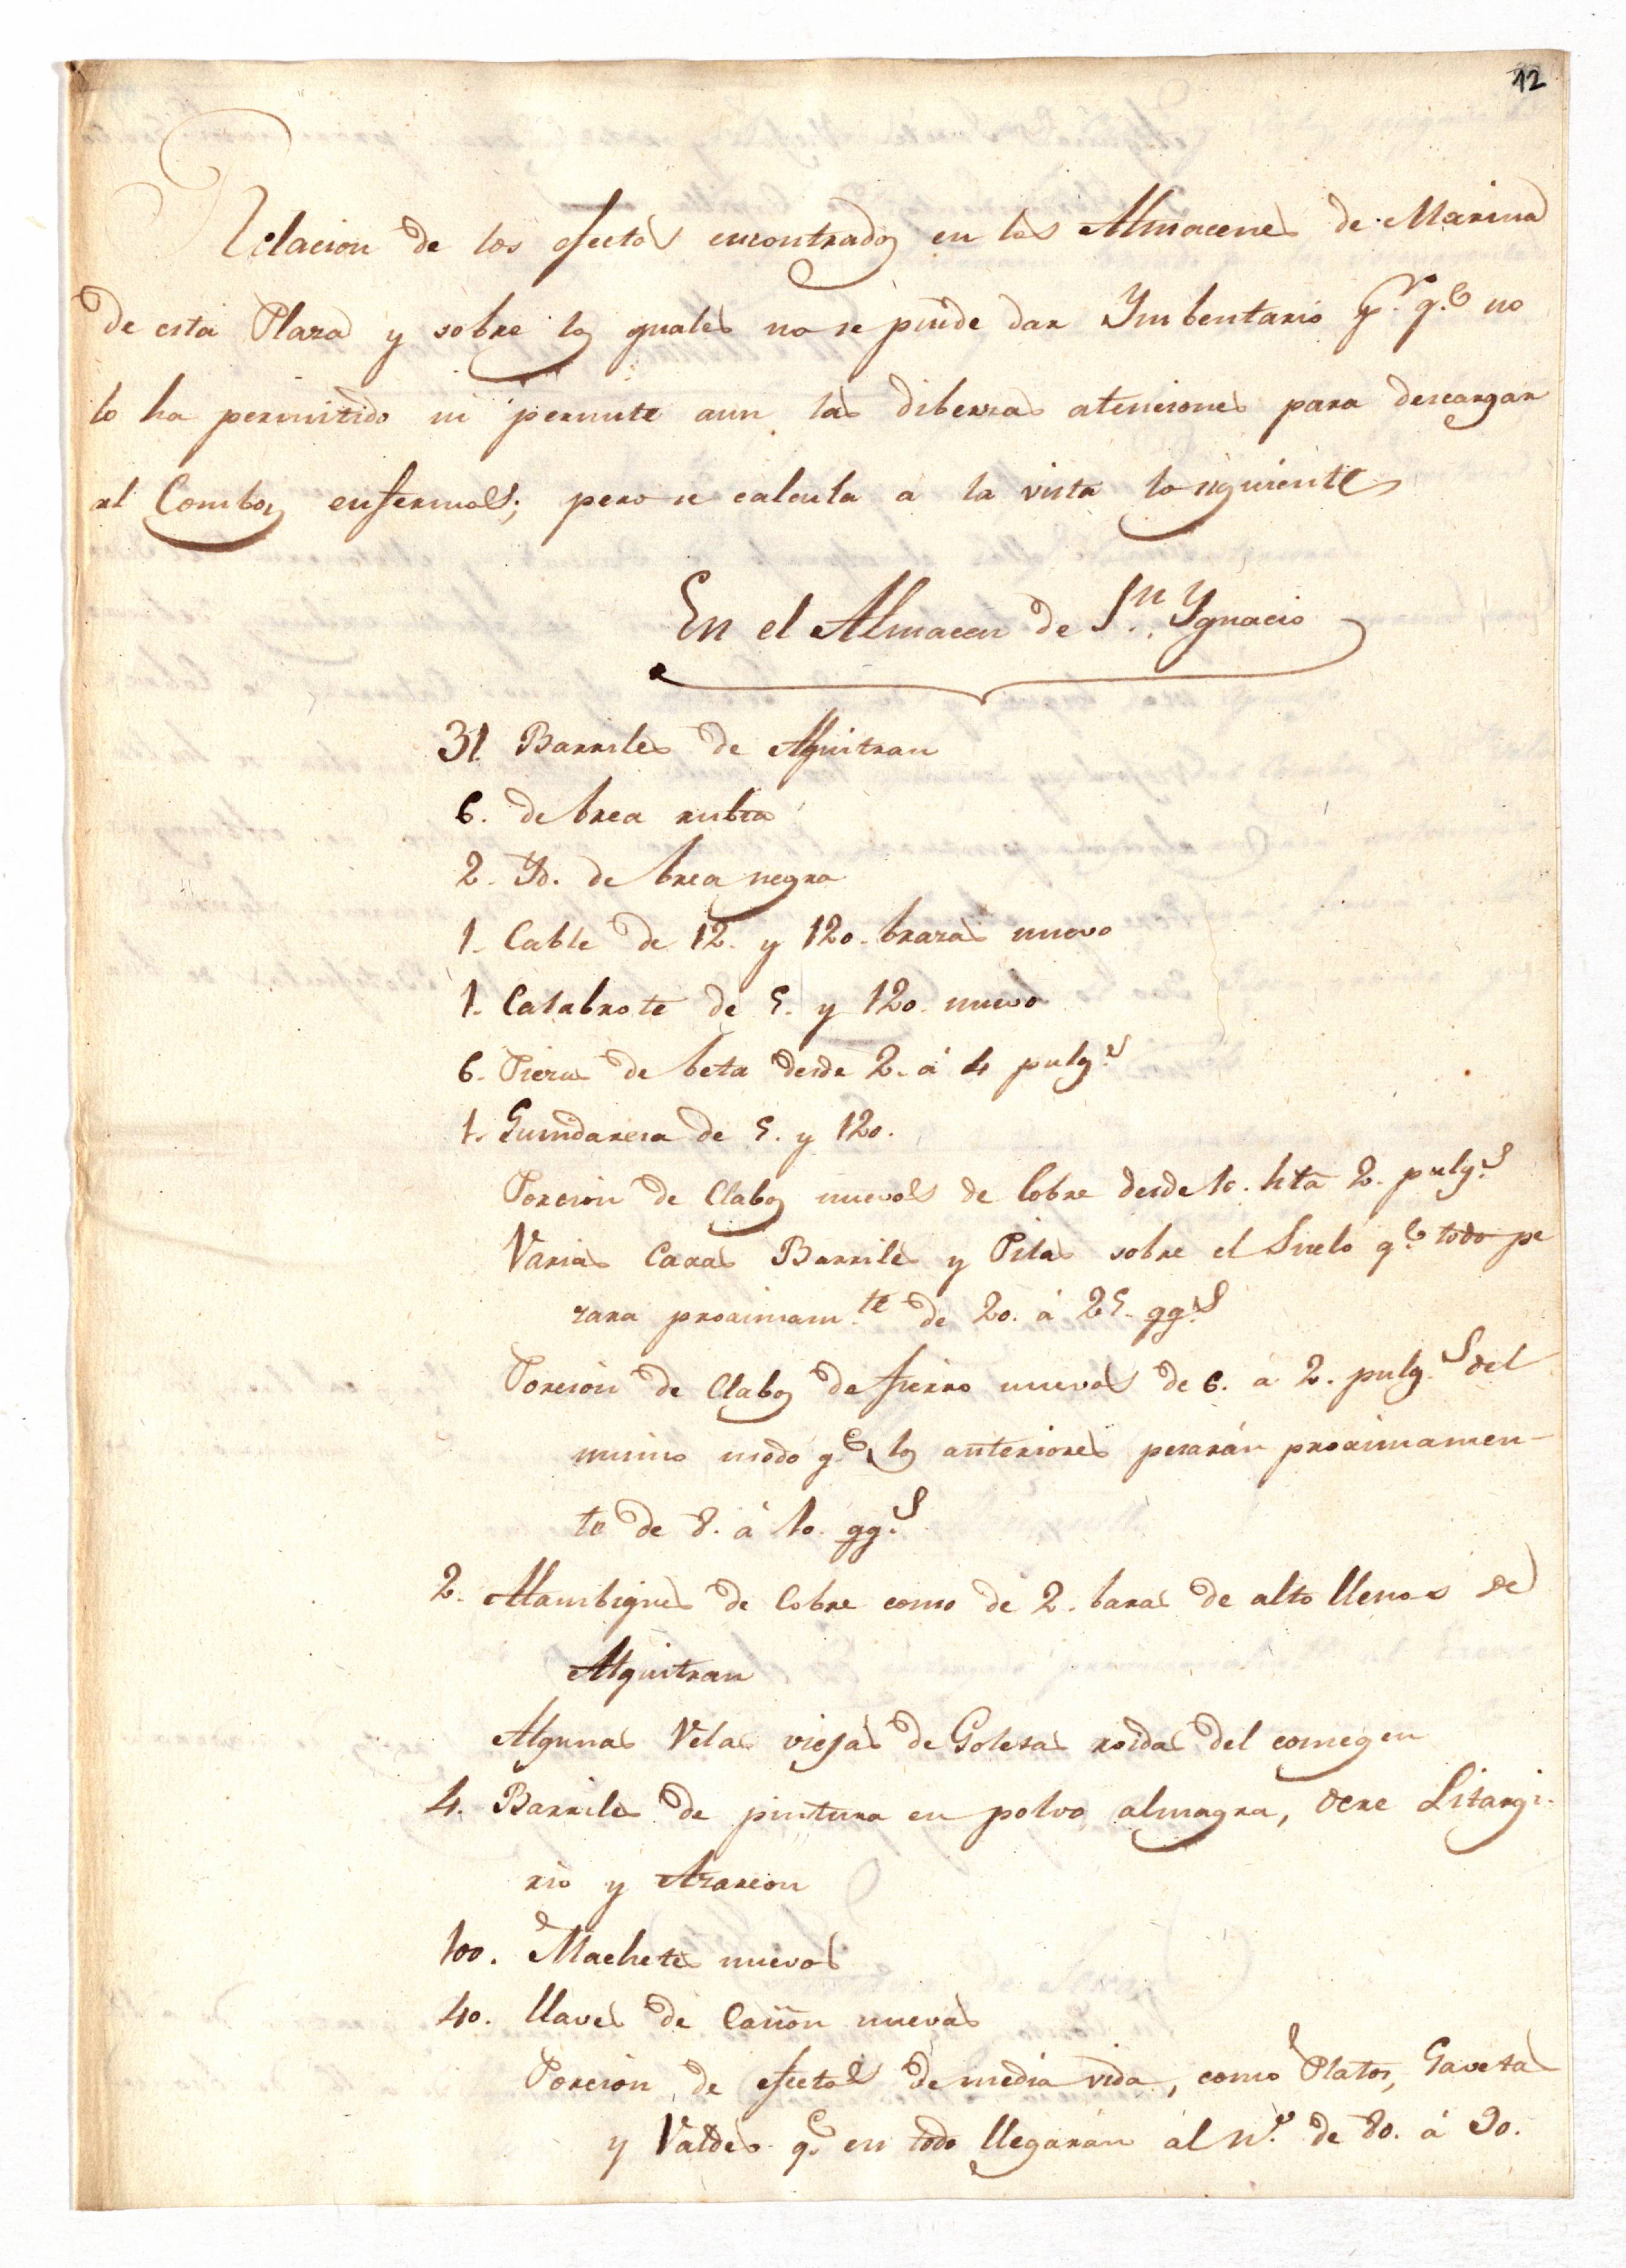 12
Relacion de los efectos encontrados en los Almacenes de Marina
de esta Plaza y sobre los quales no se puede dar Ymbentario pr. qe. no
lo ha permitido ni permite aun las diberzas atenciones para descargar
el Comboy enfermos; pero se calcula a la vista lo siguiente
En el Almacen de Sn. Ygnacio
31 Barriles de Alquitran
6. de brea rubia
2. Yd. de brea negra
1. Cable de 12. y 120. brazas nuevo
1. Calabrote de 5. y 120. nuevo
6. Piezas de beta desde 2. á 4 pulgs.
1. Guindareza de 5. y 120.
Porcion de Clabos nuevos de Cobre desde 10. hta 2. pulgs.
Varias Caxas Barriles y Pilas sobre el Suelo qe. todo pe
zara proximamte. de 20. á 25. qqs.
Porcion de Clabos de fierro nuevos de 6. a 2. pulgs. del
mismo modo qe. los anteriores pesarán proximamen-
te de 8. á 10. qqs.
2. Alambiques de Cobre como de 2. baras de alto llenos de
Alquitran
Algunas Velas viejas de Goletas roidas del comegen
4. Barriles de pintura en polvo almagra, ocre Litargi-
rio y Azarcon
100. Machetes nuevos
40. llaves de Cañon nuevas
Porcion de efectos de media vida, como Platos, Gavetas
y Valdes qe. en todo llegarán al no. de 80. á 90.